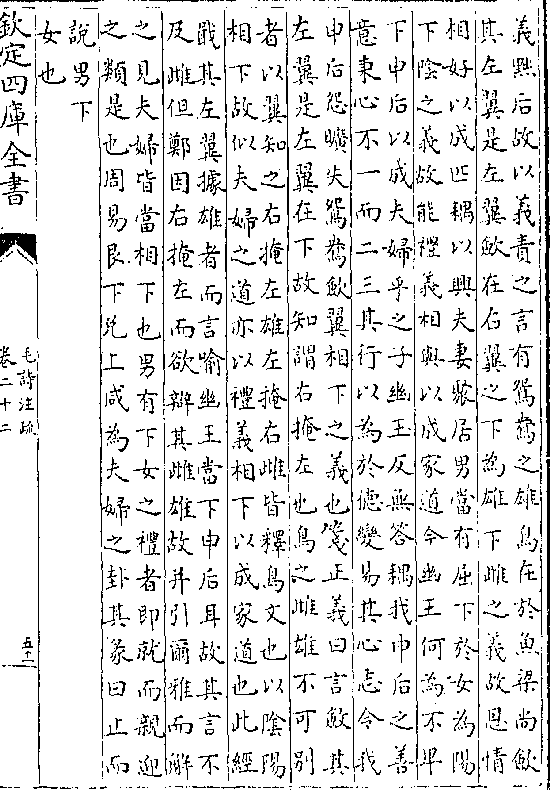 義黜后故以義責之言有鴛鴦之雄鳥在於魚梁尚斂
其左翼是左翼斂在右翼之下為雄下雌之義故恩情
相好以成匹耦以興夫妻聚居男當有屈下於女為陽
下陰之義故能禮義相與以成家道今幽王何為不卑
下申后以成夫婦乎之子幽王反無答耦我申后之善
意秉心不一而二三其行以為於德變易其心志令我
申后怨曠失鴛鴦斂翼相下之義也箋正義曰言斂其
左翼是左翼在下故知謂右掩左也鳥之雌雄不可別
者以翼知之右掩左雄左掩右雌皆釋鳥文也以陰陽
相下故似夫婦之道亦以禮義相下以成家道也此經
戢其左翼據雄者而言喻幽王當下申后耳故其言不
及雌但鄭因右掩左而欲辯其雌雄故并引爾雅而解
之見夫婦皆當相下也男有下女之禮者即就而親迎
之類是也周易艮下兌上咸為夫婦之卦其彖曰止而
說男下
女也
欽定四庫全書
毛詩注疏
卷二十二
五十二